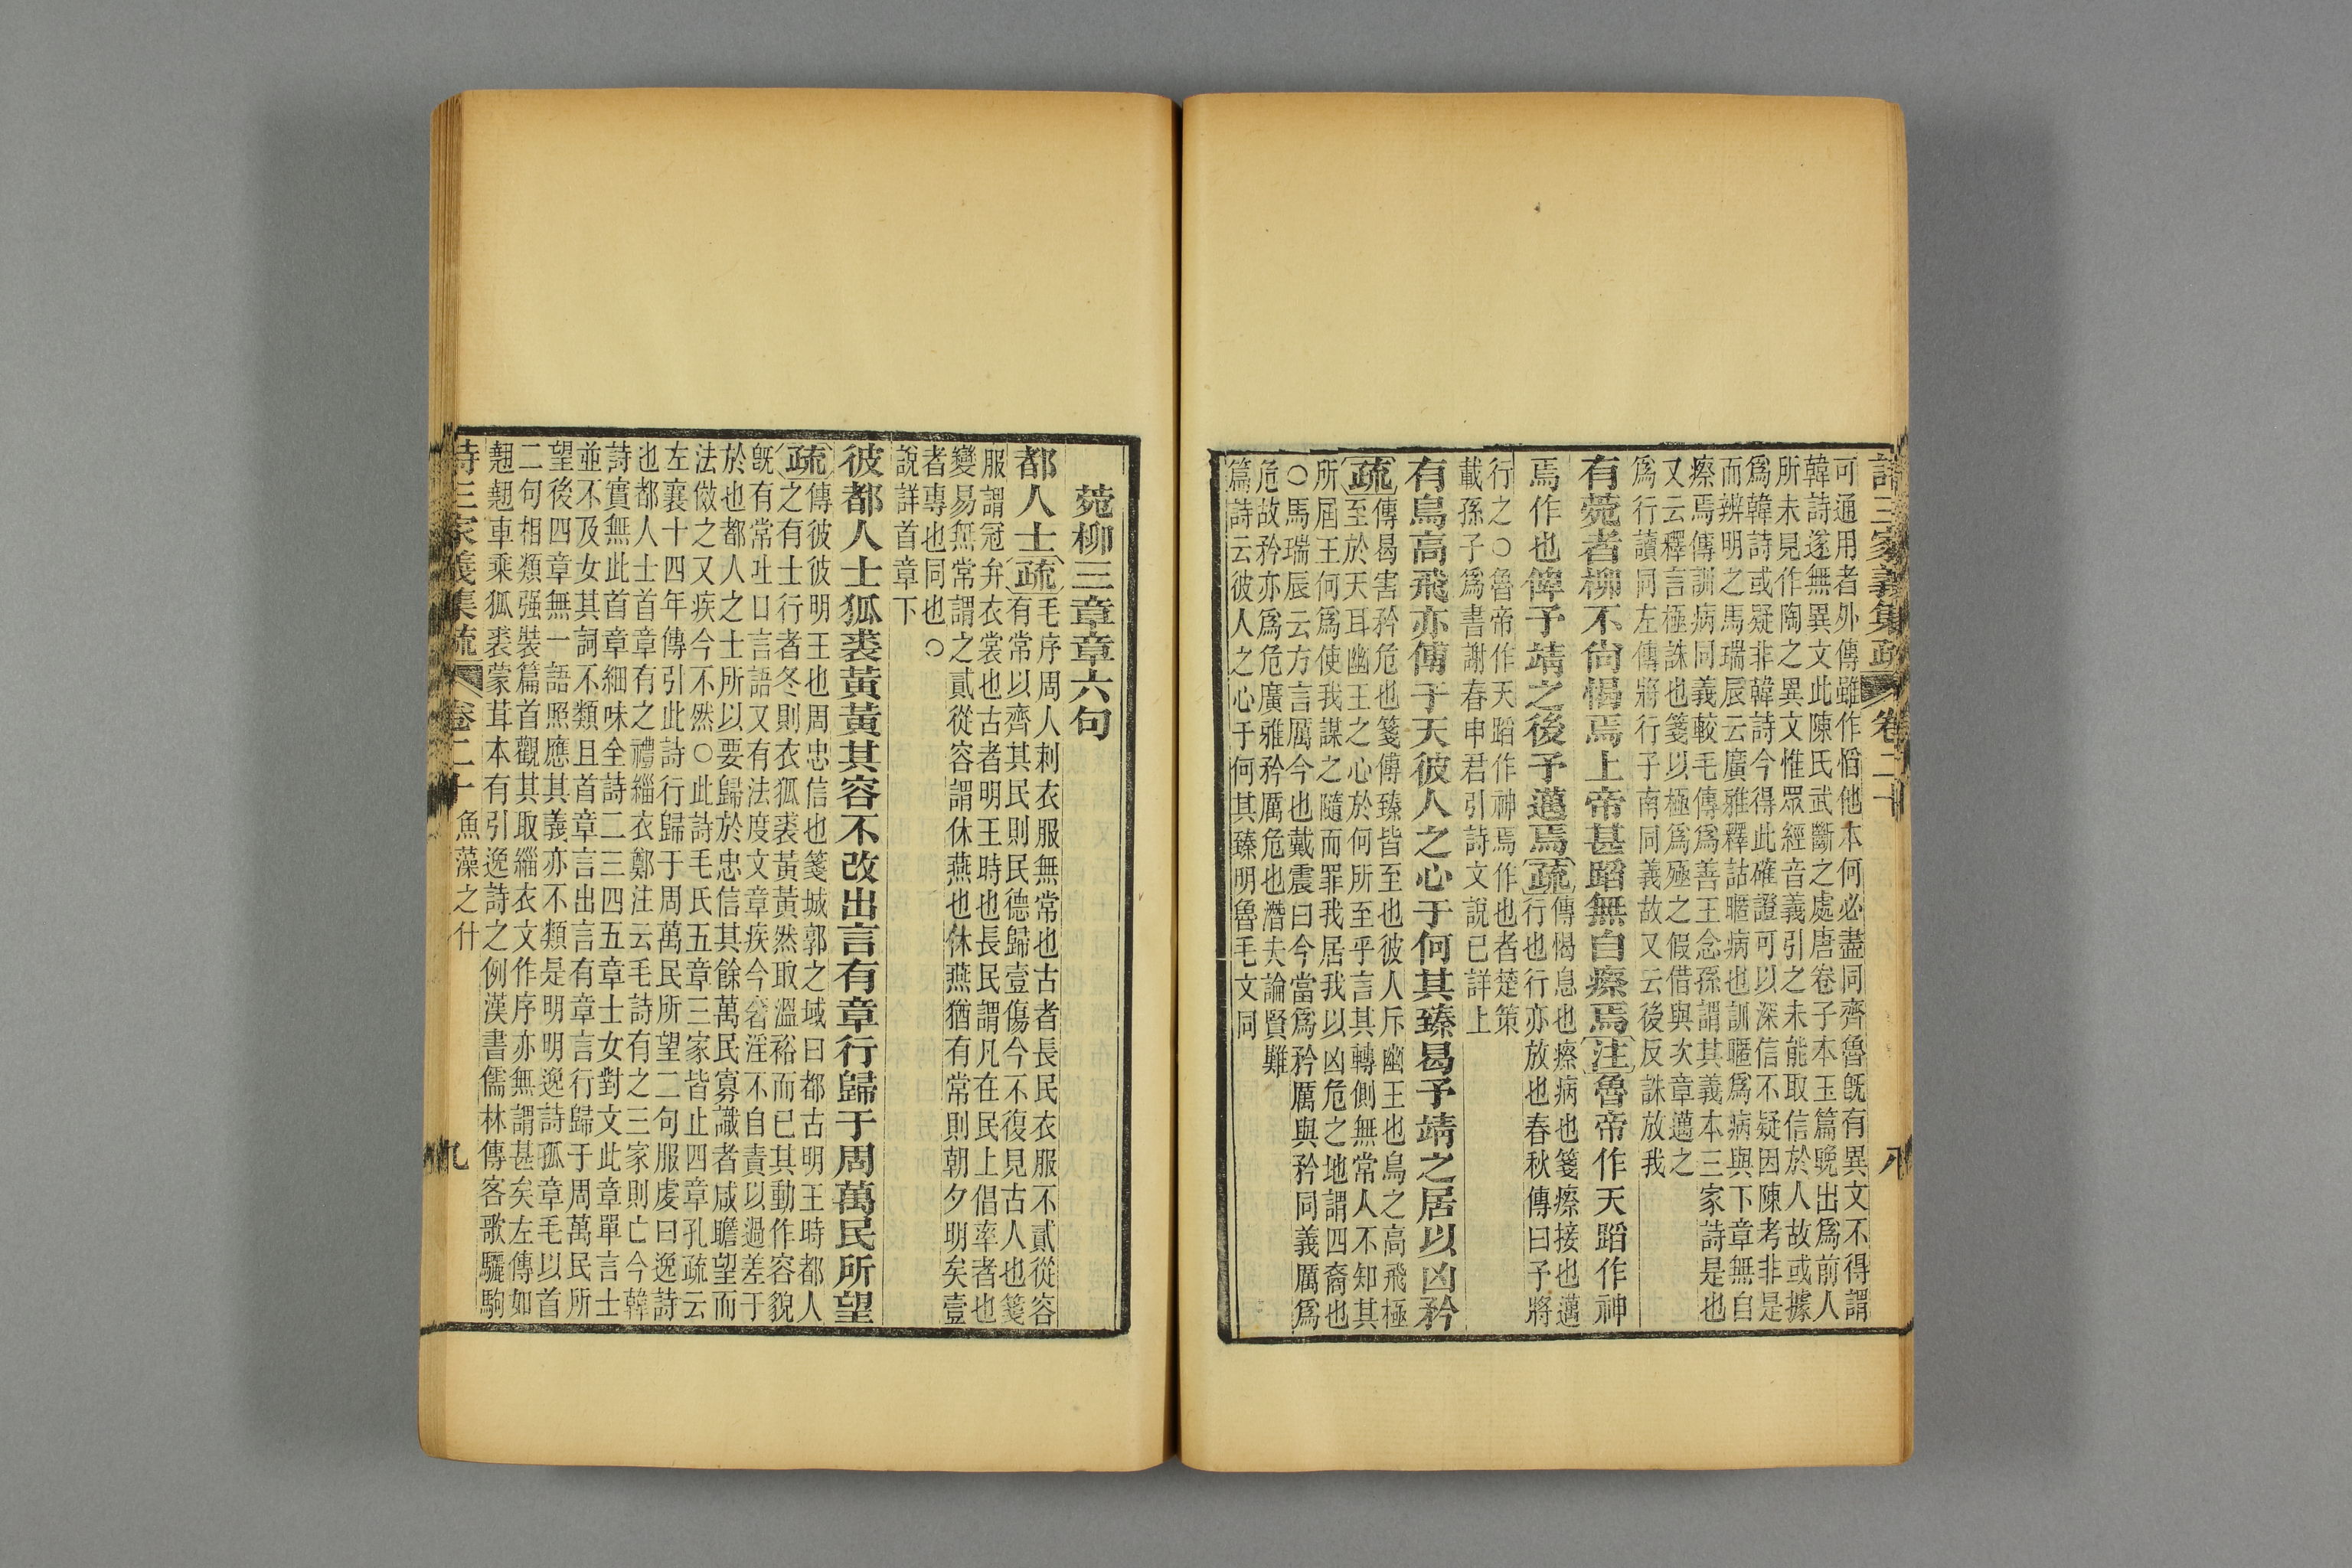 詩三家義集疏 卷二十 八
可通用者外傳雖作慆他本何必盡同齊魯旣有異文不得謂
韓詩遂無異文此陳氏武斷之處唐卷子本玉篇晚出爲前人
所未見作陶之異文惟眾經音義引之未能取信於人故或據
爲韓詩或疑非韓詩今得此確證可以深信不疑因陳考非是
而辨明之馬瑞辰云廣雅釋詁暱病也訓暱爲病與下章無自
瘵焉傳訓病同義較毛傳爲善王念孫謂其義本三家詩是也
又云釋言極誅也箋以極爲殛之假借與次章邁之
爲行讀同左傳將行子南同義故又云後反誅放我
有菀者柳不尙愒焉上帝甚蹈無自瘵焉注魯帝作天蹈作神
焉作也俾予靖之後予邁焉疏傳愒息也瘵病也箋瘵接也邁
行也行亦放也春秋傳曰予將
行之○魯帝作天蹈作神焉作也者楚策
載孫子爲書謝春申君引詩文說已詳上
有鳥高飛亦傅于天彼人之心于何其臻曷予靖之居以凶矜
疏傳曷害矜危也箋傅臻皆至也彼人斥幽王也鳥之高飛極
至於天耳幽王之心於何所至乎言其轉側無常人不知其
所屆王何爲使我謀之隨而罪我居我以凶危之地謂四裔也
○馬瑞辰云方言厲今也戴震曰今當爲矜厲與矜同義厲爲
危故矜亦爲危廣雅矜厲危也潛夫論賢難
篇詩云彼人之心于何其臻明魯毛文同
菀柳三章章六句
都人士疏毛序周人刺衣服無常也古者長民衣服不貳從容
有常以齊其民則民德歸壹傷今不復見古人也箋
服謂冠弁衣裳也古者明王時也長民謂凡在民上倡率者也
變易無常謂之貳從容謂休燕也休燕猶有常則朝夕明矣壹
者專也同也○
說詳首章下
彼都人士狐裘黃黃其容不改出言有章行歸于周萬民所望
疏傳彼彼明王也周忠信也箋城郭之域曰都古明王時都人
之有士行者冬則衣狐裘黃黃然取溫裕而已其動作容貌
旣有常吐口言語又有法度文章疾今奢淫不自責以過差于
於也都人之士所以要歸於忠信其餘萬民寡識者咸瞻望而
法傚之又疾今不然○此詩毛氏五章三家皆止四章孔疏云
左襄十四年傳引此詩行歸于周萬民所望二句服虔曰逸詩
也都人士首章有之禮緇衣鄭注云毛詩有之三家則亡今韓
詩實無此首章細味全詩二三四五章士女對文此章單言士
並不及女其詞不類且首章言出言有章言行歸于周萬民所
望後四章無一語照應其義亦不類是明明逸詩孤章毛以首
二句相類强裝篇首觀其取緇衣文作序亦無謂甚矣左傳如
翹翹車乘狐裘蒙茸本有引逸詩之例漢書儒林傳客歌驪駒
詩三家義集疏 卷二十 魚藻之什 九